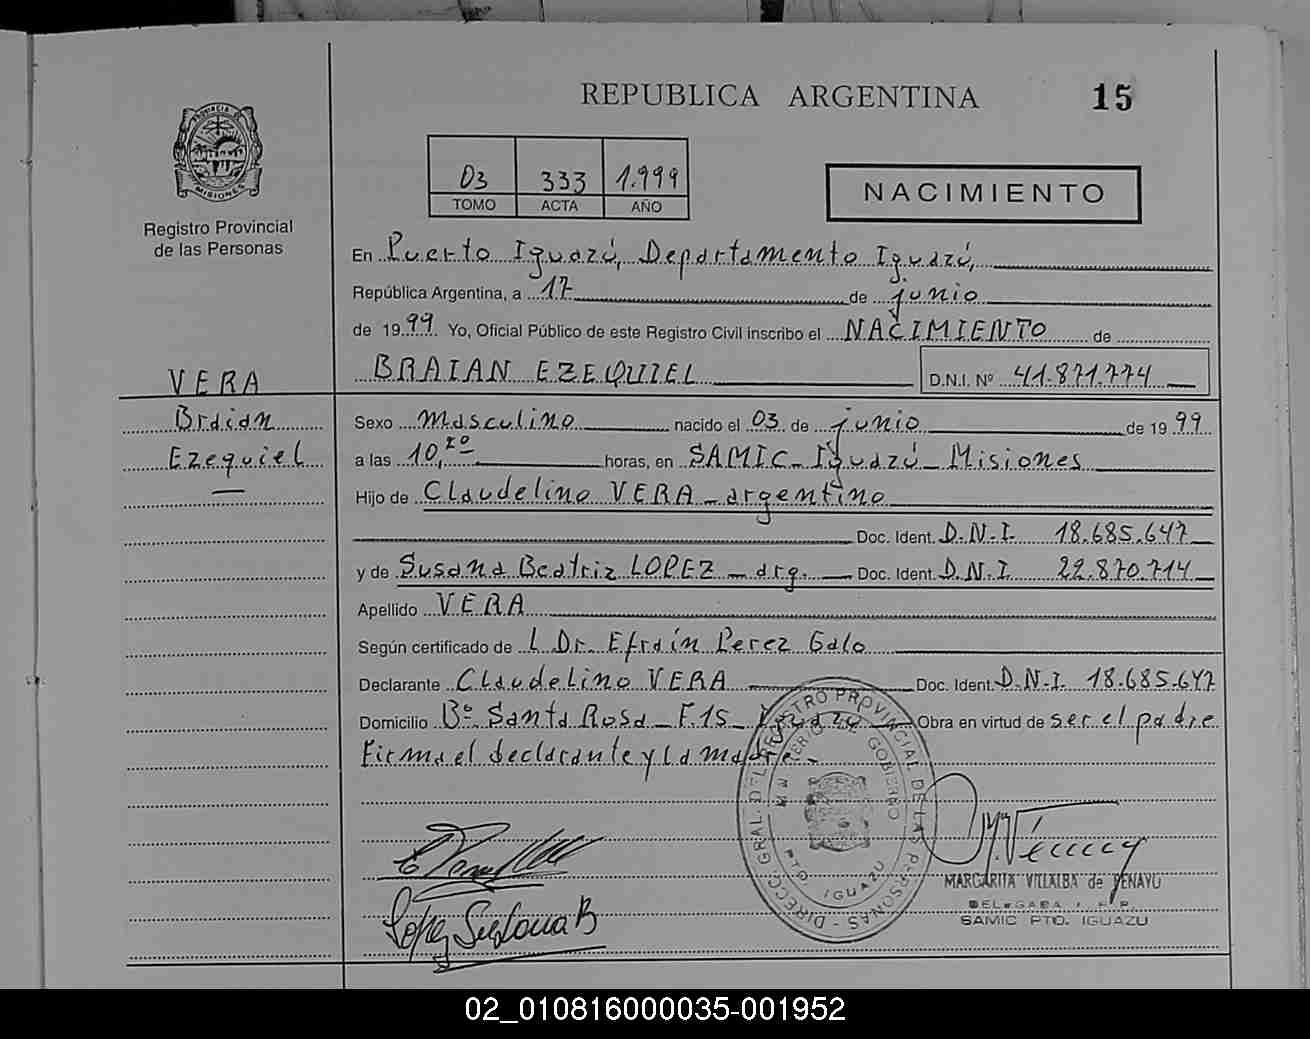 REPUBLICA ARGENTINA
15
PROVINCIA DE
MISIONES
Registro Provincial
de las Personas
03 333 1.999
TOMO ACTA AÑO
NACIMIENTO
En Puerto Iguazú, Departamento Iguazú,
República Argentina, a 17 de junio
de 1999 Yo, Oficial Público de este Registro Civil inscribo el NACIMIENTO de
BRAIAN EZEQUIEL D.N.I. Nº 41.871.774
VERA
Braian
Ezequiel
Sexo Masculino nacido el 03 de junio de 1999
a las 10,20 horas, en SAMIC - Iguazú - Misiones
Hijo de Claudelino VERA - argentino
Doc. Ident. D.N.I. 18.685.647
y de Susana Beatriz LOPEZ - arg. Doc. Ident. D.N.I 22.870.714
Apellido VERA
Según certificado de L Dr. Efraín Perez Galo
Declarante Claudelino VERA Doc. Ident. D.N.I. 18.685.647
Domicilio Bº Santa Rosa - F.15 - Iguazú Obra en virtud de ser el padre
Firma el declarante y la madre.-
DIRECC. GRAL. DEL REGISTRO PROVINCIAL DE LAS PERSONAS
MINISTERIO DE GOBIERNO
PTO. IGUAZU
Lopez Susana B
MARGARITA VILLALBA de PENAYO
DELEGADA R.P.P.
SAMIC PTO. IGUAZU
02_010816000035-001952